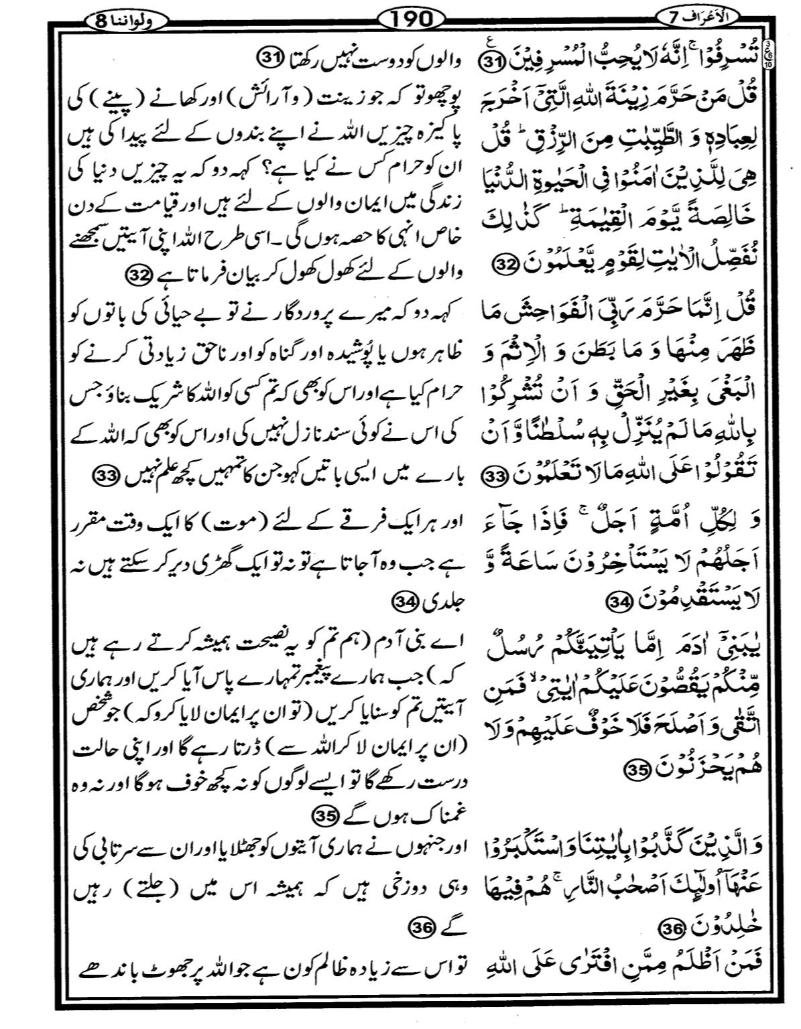 الاعراف 7
190
ولواننا 8
تُسْرِفُوْا ۚ اِنَّهٗ لَا يُحِبُّ الْمُسْرِفِيْنَ ۧ 31
قُلْ مَنْ حَرَّمَ زِيْنَةَ اللّٰهِ الَّتِيْٓ اَخْرَجَ
لِعِبَادِهٖ وَ الطَّيِّبٰتِ مِنَ الرِّزْقِ ؕ قُلْ
هِيَ لِلَّذِيْنَ اٰمَنُوْا فِي الْحَيٰوةِ الدُّنْيَا
خَالِصَةً يَّوْمَ الْقِيٰمَةِ ؕ كَذٰلِكَ
نُفَصِّلُ الْاٰيٰتِ لِقَوْمٍ يَّعْلَمُوْنَ 32
قُلْ اِنَّمَا حَرَّمَ رَبِّيَ الْفَوَاحِشَ مَا
ظَهَرَ مِنْهَا وَ مَا بَطَنَ وَ الْاِثْمَ وَ
الْبَغْيَ بِغَيْرِ الْحَقِّ وَ اَنْ تُشْرِكُوْا
بِاللّٰهِ مَا لَمْ يُنَزِّلْ بِهٖ سُلْطٰنًا وَّ اَنْ
تَقُوْلُوْا عَلَى اللّٰهِ مَا لَا تَعْلَمُوْنَ 33
وَ لِكُلِّ اُمَّةٍ اَجَلٌ ۚ فَاِذَا جَآءَ
اَجَلُهُمْ لَا يَسْتَاْخِرُوْنَ سَاعَةً وَّ
لَا يَسْتَقْدِمُوْنَ 34
يٰبَنِيْٓ اٰدَمَ اِمَّا يَاْتِيَنَّكُمْ رُسُلٌ
مِّنْكُمْ يَقُصُّوْنَ عَلَيْكُمْ اٰيٰتِيْ ۙ فَمَنِ
اتَّقٰى وَ اَصْلَحَ فَلَا خَوْفٌ عَلَيْهِمْ وَ لَا
هُمْ يَحْزَنُوْنَ 35
وَ الَّذِيْنَ كَذَّبُوْا بِاٰيٰتِنَا وَ اسْتَكْبَرُوْا
عَنْهَآ اُولٰٓئِكَ اَصْحٰبُ النَّارِ ۚ هُمْ فِيْهَا
خٰلِدُوْنَ 36
فَمَنْ اَظْلَمُ مِمَّنِ افْتَرٰى عَلَى اللّٰهِ
والوں کو دوست نہیں رکھتا 31
پوچھو تو کہ جو زینت (وآرائش) اور کھانے (پینے) کی
پاکیزہ چیزیں اللہ نے اپنے بندوں کے لئے پیدا کی ہیں
ان کو حرام کس نے کیا ہے؟ کہہ دو کہ یہ چیزیں دنیا کی
زندگی میں ایمان والوں کے لئے ہیں اور قیامت کے دن
خاص انہی کا حصہ ہوں گی۔ اسی طرح اللہ اپنی آیتیں سمجھنے
والوں کے لئے کھول کھول کر بیان فرماتا ہے 32
کہہ دو کہ میرے پروردگار نے تو بے حیائی کی باتوں کو
ظاہر ہوں یا پوشیدہ اور گناہ کو اور ناحق زیادتی کرنے کو
حرام کیا ہے اور اس کو بھی کہ تم کسی کو اللہ کا شریک بناؤ جس
کی اس نے کوئی سند نازل نہیں کی اور اس کو بھی کہ اللہ کے
بارے میں ایسی باتیں کہو جن کا تمہیں کچھ علم نہیں 33
اور ہر ایک فرقے کے لئے (موت) کا ایک وقت مقرر
ہے جب وہ آ جاتا ہے تو نہ تو ایک گھڑی دیر کر سکتے ہیں نہ
جلدی 34
اے بنی آدم (ہم تم کو یہ نصیحت ہمیشہ کرتے رہے ہیں
کہ) جب ہمارے پیغمبر تمہارے پاس آیا کریں اور ہماری
آیتیں تم کو سنایا کریں (تو ان پر ایمان لایا کرو کہ) جو شخص
(ان پر ایمان لا کر اللہ سے) ڈرتا رہے گا اور اپنی حالت
درست رکھے گا تو ایسے لوگوں کو نہ کچھ خوف ہوگا اور نہ وہ
غمناک ہوں گے 35
اور جنہوں نے ہماری آیتوں کو جھٹلایا اور ان سے سرتابی کی
وہی دوزخی ہیں کہ ہمیشہ اس میں (جلتے) رہیں
گے 36
تو اس سے زیادہ ظالم کون ہے جو اللہ پر جھوٹ باندھے